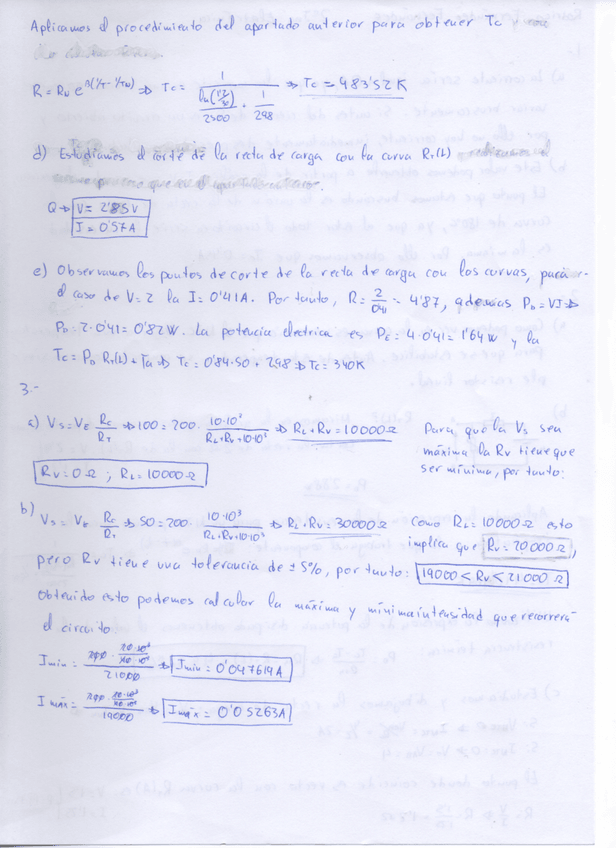 Aplicamos el procedimiento del apartado anterior para obtener Tc
R = R_N e^{B(1/T - 1/TN)} ⇒ Tc = 1 / (ln( ) / 2500 + 1/298) ⇒ Tc = 483'52 K
d) Estudiamos el corte de la recta de carga con la curva R_T(L)
Q → V = 2'85 V
I = 0'57 A
e) Observamos los puntos de corte de la recta de carga con las curvas, para
el caso de V=2 la I = 0'41 A. Por tanto, R = 2/0'41 = 4'87, además P_D = VI ⇒
P_D = 2·0'41 = 0'82 W. La potencia eléctrica es P_E = 4·0'41 = 1'64 W y la
Tc = P_D R_T(L) + Ta ⇒ Tc = 0'84·50 + 298 ⇒ Tc = 340 K
3.-
a) V_S = V_E R_C/R_T ⇒ 100 = 200 · 10·10³/(R_L+R_V+10·10³) ⇒ R_L + R_V = 10000 Ω Para que la V_S sea
máxima la R_V tiene que
ser mínima, por tanto:
R_V = 0 Ω ; R_L = 10000 Ω
b) V_S = V_E R_C/R_T ⇒ 50 = 200 · 10·10³/(R_L+R_V+10·10³) ⇒ R_L + R_V = 30000 Ω Como R_L = 10000 Ω esto
implica que R_V = 20000 Ω,
pero R_V tiene una tolerancia de ± 5%, por tanto: 19000 < R_V < 21000 Ω
Obtenido esto podemos calcular la máxima y mínima intensidad que recorrerá
el circuito:
I min = / 21000 ⇒ I min = 0'047619 A
I máx = / 19000 ⇒ I máx = 0'05263 A